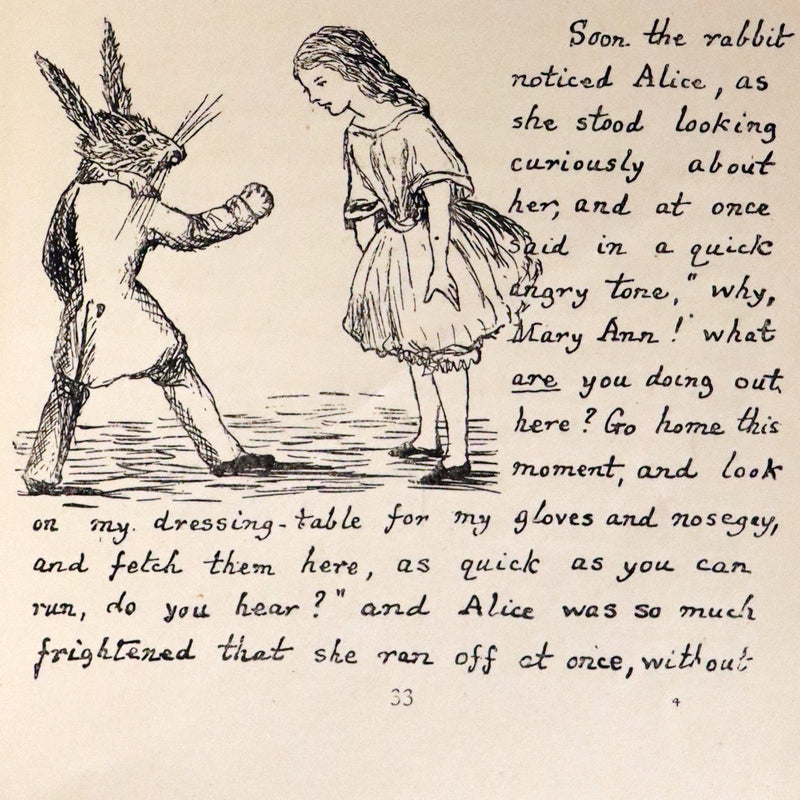 Soon the rabbit
noticed Alice, as
she stood looking
curiously about
her, and at once
said in a quick
angry tone, "why,
Mary Ann! what
are you doing out
here? Go home this
moment, and look
on my dressing-table for my gloves and nosegay,
and fetch them here, as quick as you can
run, do you hear?" and Alice was so much
frightened that she ran off at once, without
33
4